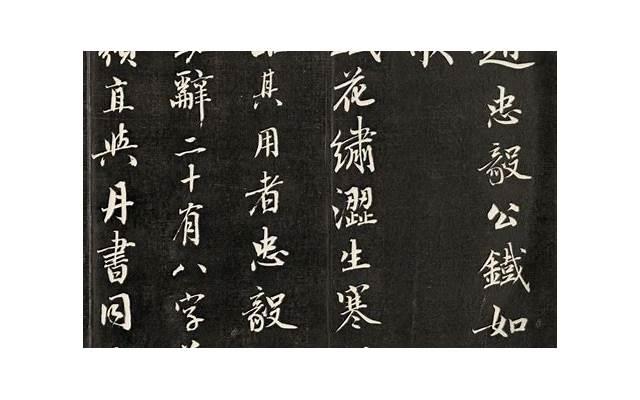 趙忠毅公鐵如
歌
花繡澀生寒
其用者忠毅
辭二十有八字
直與丹書同